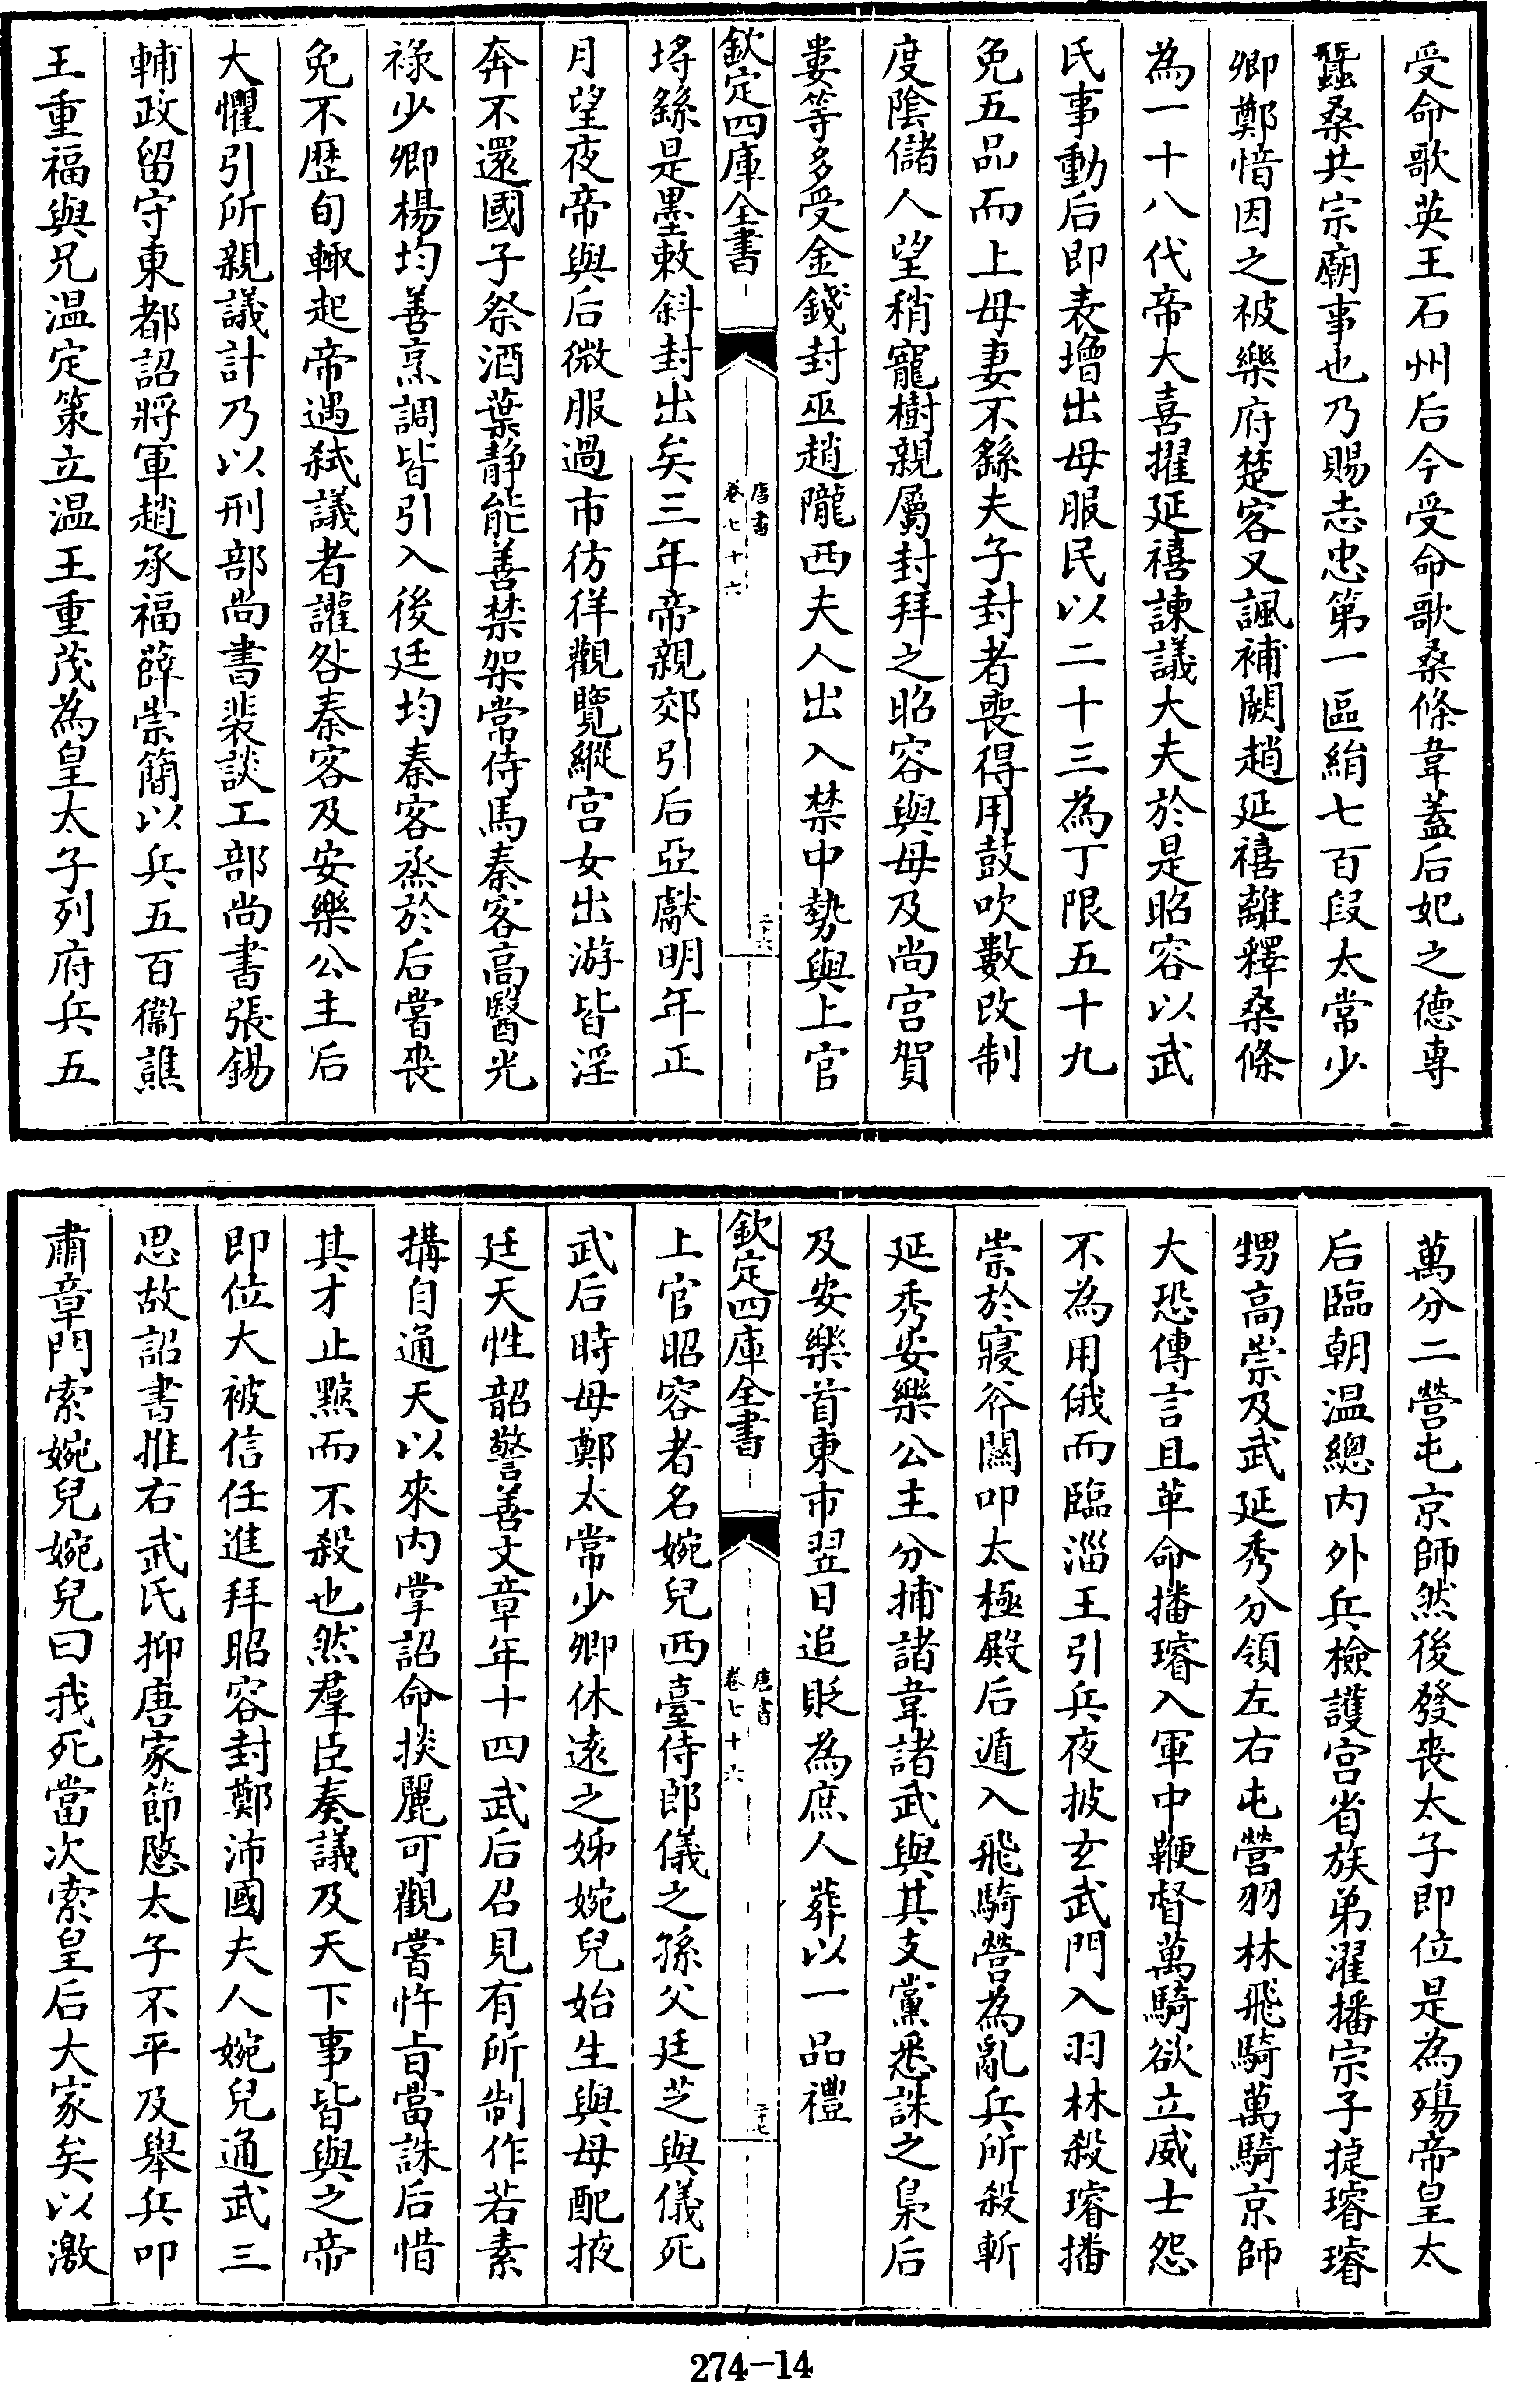 受命歌英王石州后今受命歌桑條韋蓋后妃之德專
蠶桑共宗廟事也乃賜志忠第一區絹七百段太常少
卿鄭愔因之被樂府楚客又諷補闕趙延禧離釋桑條
為一十八代帝大喜擢延禧諫議大夫於是昭容以武
氏事動后即表增出母服民以二十三為丁限五十九
免五品而上母妻不繇夫子封者喪得用鼓吹數改制
度陰儲人望稍寵樹親屬封拜之昭容與母及尚宫賀
婁等多受金錢封巫趙隴西夫人出入禁中勢與上官
欽定四庫全書
唐書
卷七十六
二十六
埒繇是墨敕斜封出矣三年帝親郊引后亞獻明年正
月望夜帝與后微服過市彷徉觀覽縱宫女出游皆淫
奔不還國子祭酒葉静能善禁架常侍馬秦客高醫光
祿少卿楊均善烹調皆引入後廷均秦客烝於后嘗喪
免不歴旬輙起帝遇弑議者讙咎秦客及安樂公主后
大懼引所親議計乃以刑部尚書裴談工部尚書張錫
輔政留守東都詔將軍趙承福薛崇簡以兵五百衞譙
王重福與兄温定策立温王重茂為皇太子列府兵五
萬分二營屯京師然後發喪太子即位是為殤帝皇太
后臨朝温總内外兵檢護宫省族弟濯播宗子捷璿璿
甥高崇及武延秀分領左右屯營羽林飛騎萬騎京師
大恐傳言且革命播璿入軍中鞭督萬騎欲立威士怨
不為用俄而臨淄王引兵夜披玄武門入羽林殺璿播
崇於寢斧關叩太極殿后遁入飛騎營為亂兵所殺斬
延秀安樂公主分捕諸韋諸武與其支黨悉誅之梟后
及安樂首東市翌日追貶為庶人葬以一品禮
欽定四庫全書
唐書
卷七十六
二十七
上官昭容者名婉兒西臺侍郎儀之孫父廷芝與儀死
武后時母鄭太常少卿休逺之姊婉兒始生與母配掖
廷天性韶警善文章年十四武后召見有所制作若素
搆自通天以來内掌詔命掞麗可觀嘗忤旨當誅后惜
其才止黥而不殺也然羣臣奏議及天下事皆與之帝
即位大被信任進拜昭容封鄭沛國夫人婉兒通武三
思故詔書推右武氏抑唐家節愍太子不平及舉兵叩
肅章門索婉兒婉兒曰我死當次索皇后大家矣以激
274-14